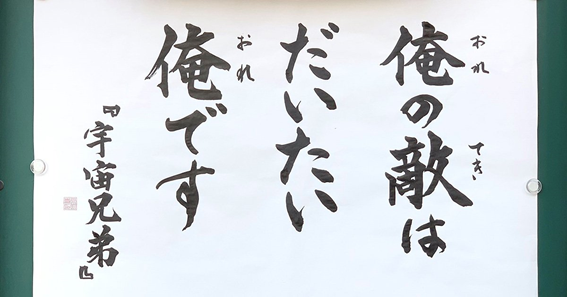 俺の敵は
おれ
てき
だいたい
俺です
おれ
『宇宙兄弟』